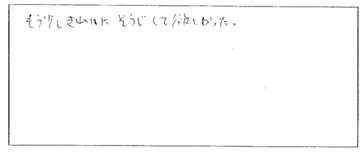 もう少しきれいに そうじして欲しかった。